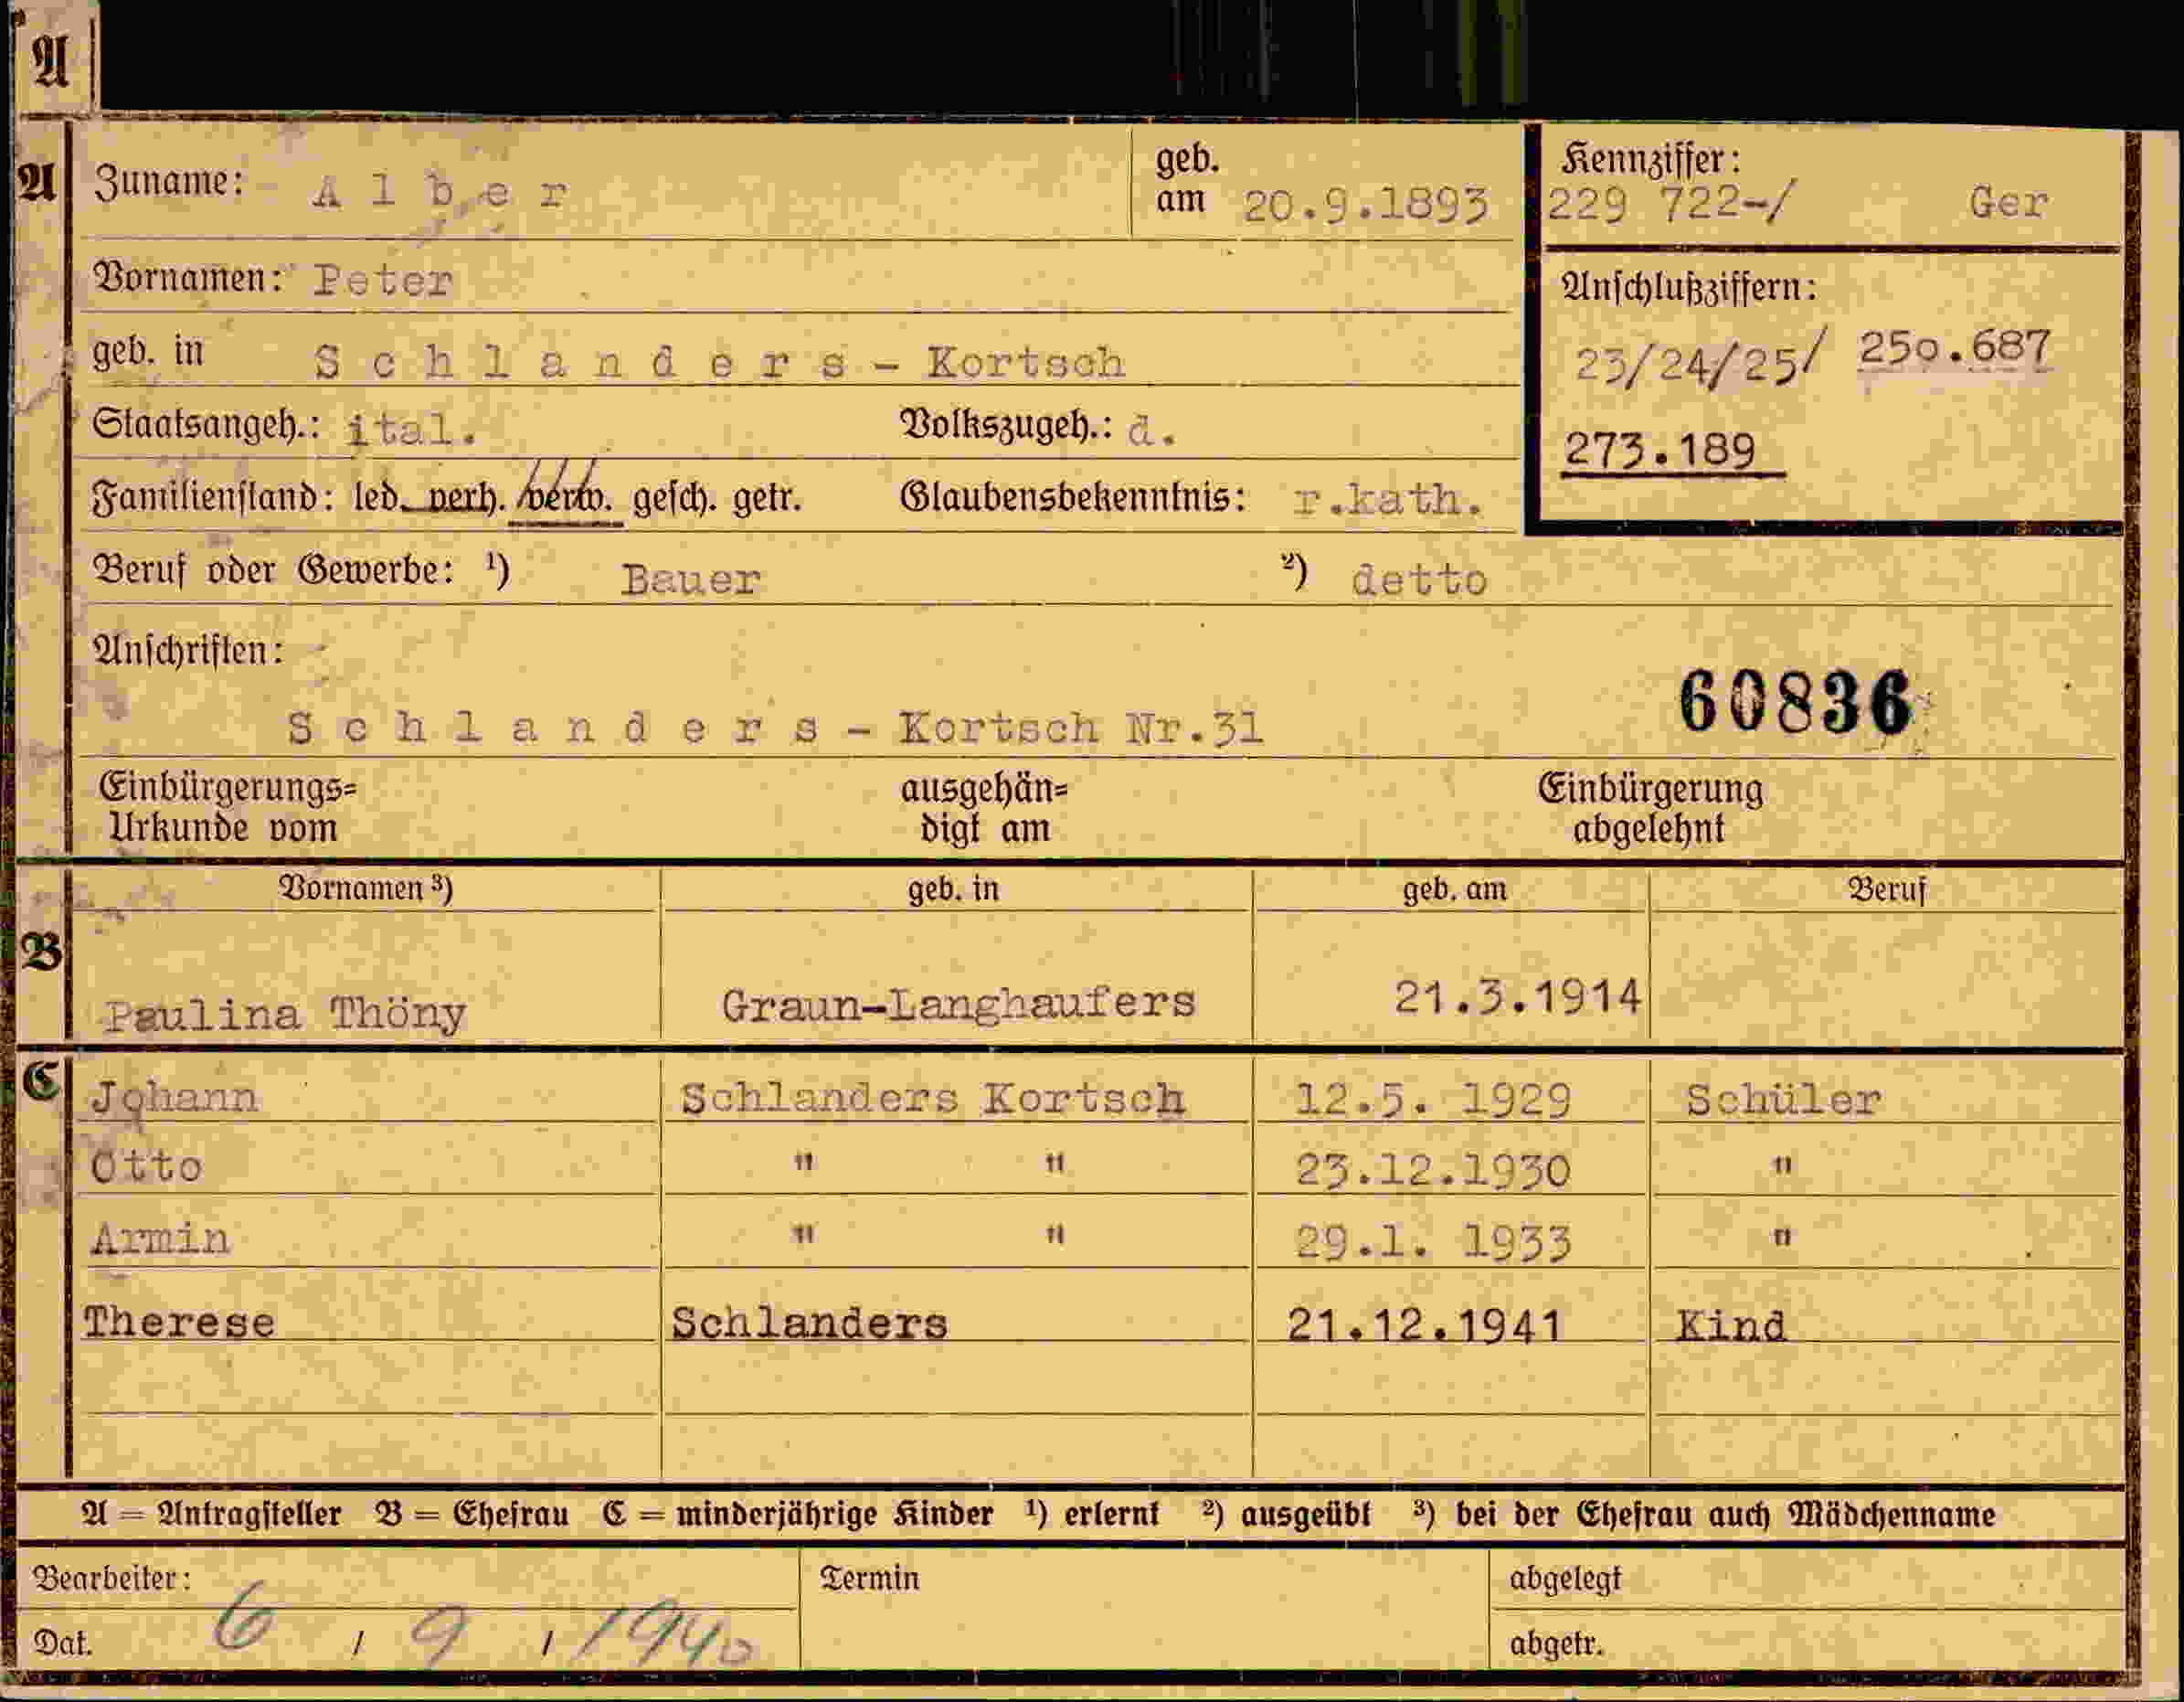 A
A Zuname: Alber geb. am 20.9.1893 Kennziffer: 229 722-/ Ger
Vornamen: Peter Anschlußziffern:
geb. in Schlanders - Kortsch 23/24/25/ 250.687
Staatsangeh.: ital. Volkszugeh.: d. 273.189
Familienstand: led. verh. verw. gesch. getr. Glaubensbekenntnis: r.kath.
Beruf oder Gewerbe: ¹) Bauer ²) detto
Anschriften:
60836
Schlanders - Kortsch Nr.31
Einbürgerungs= ausgehän= Einbürgerung
Urkunde vom digt am abgelehnt
Vornamen ³) geb. in geb. am Beruf
B Paulina Thöny Graun-Langhaufers 21.3.1914
C Johann Schlanders Kortsch 12.5. 1929 Schüler
Otto " " 23.12.1930 "
Armin " " 29.1. 1933 "
Therese Schlanders 21.12.1941 Kind
A = Antragsteller B = Ehefrau C = minderjährige Kinder ¹) erlernt ²) ausgeübt ³) bei der Ehefrau auch Mädchenname
Bearbeiter: Termin abgelegt
Dat. 6 / 9 / 1940 abgetr.